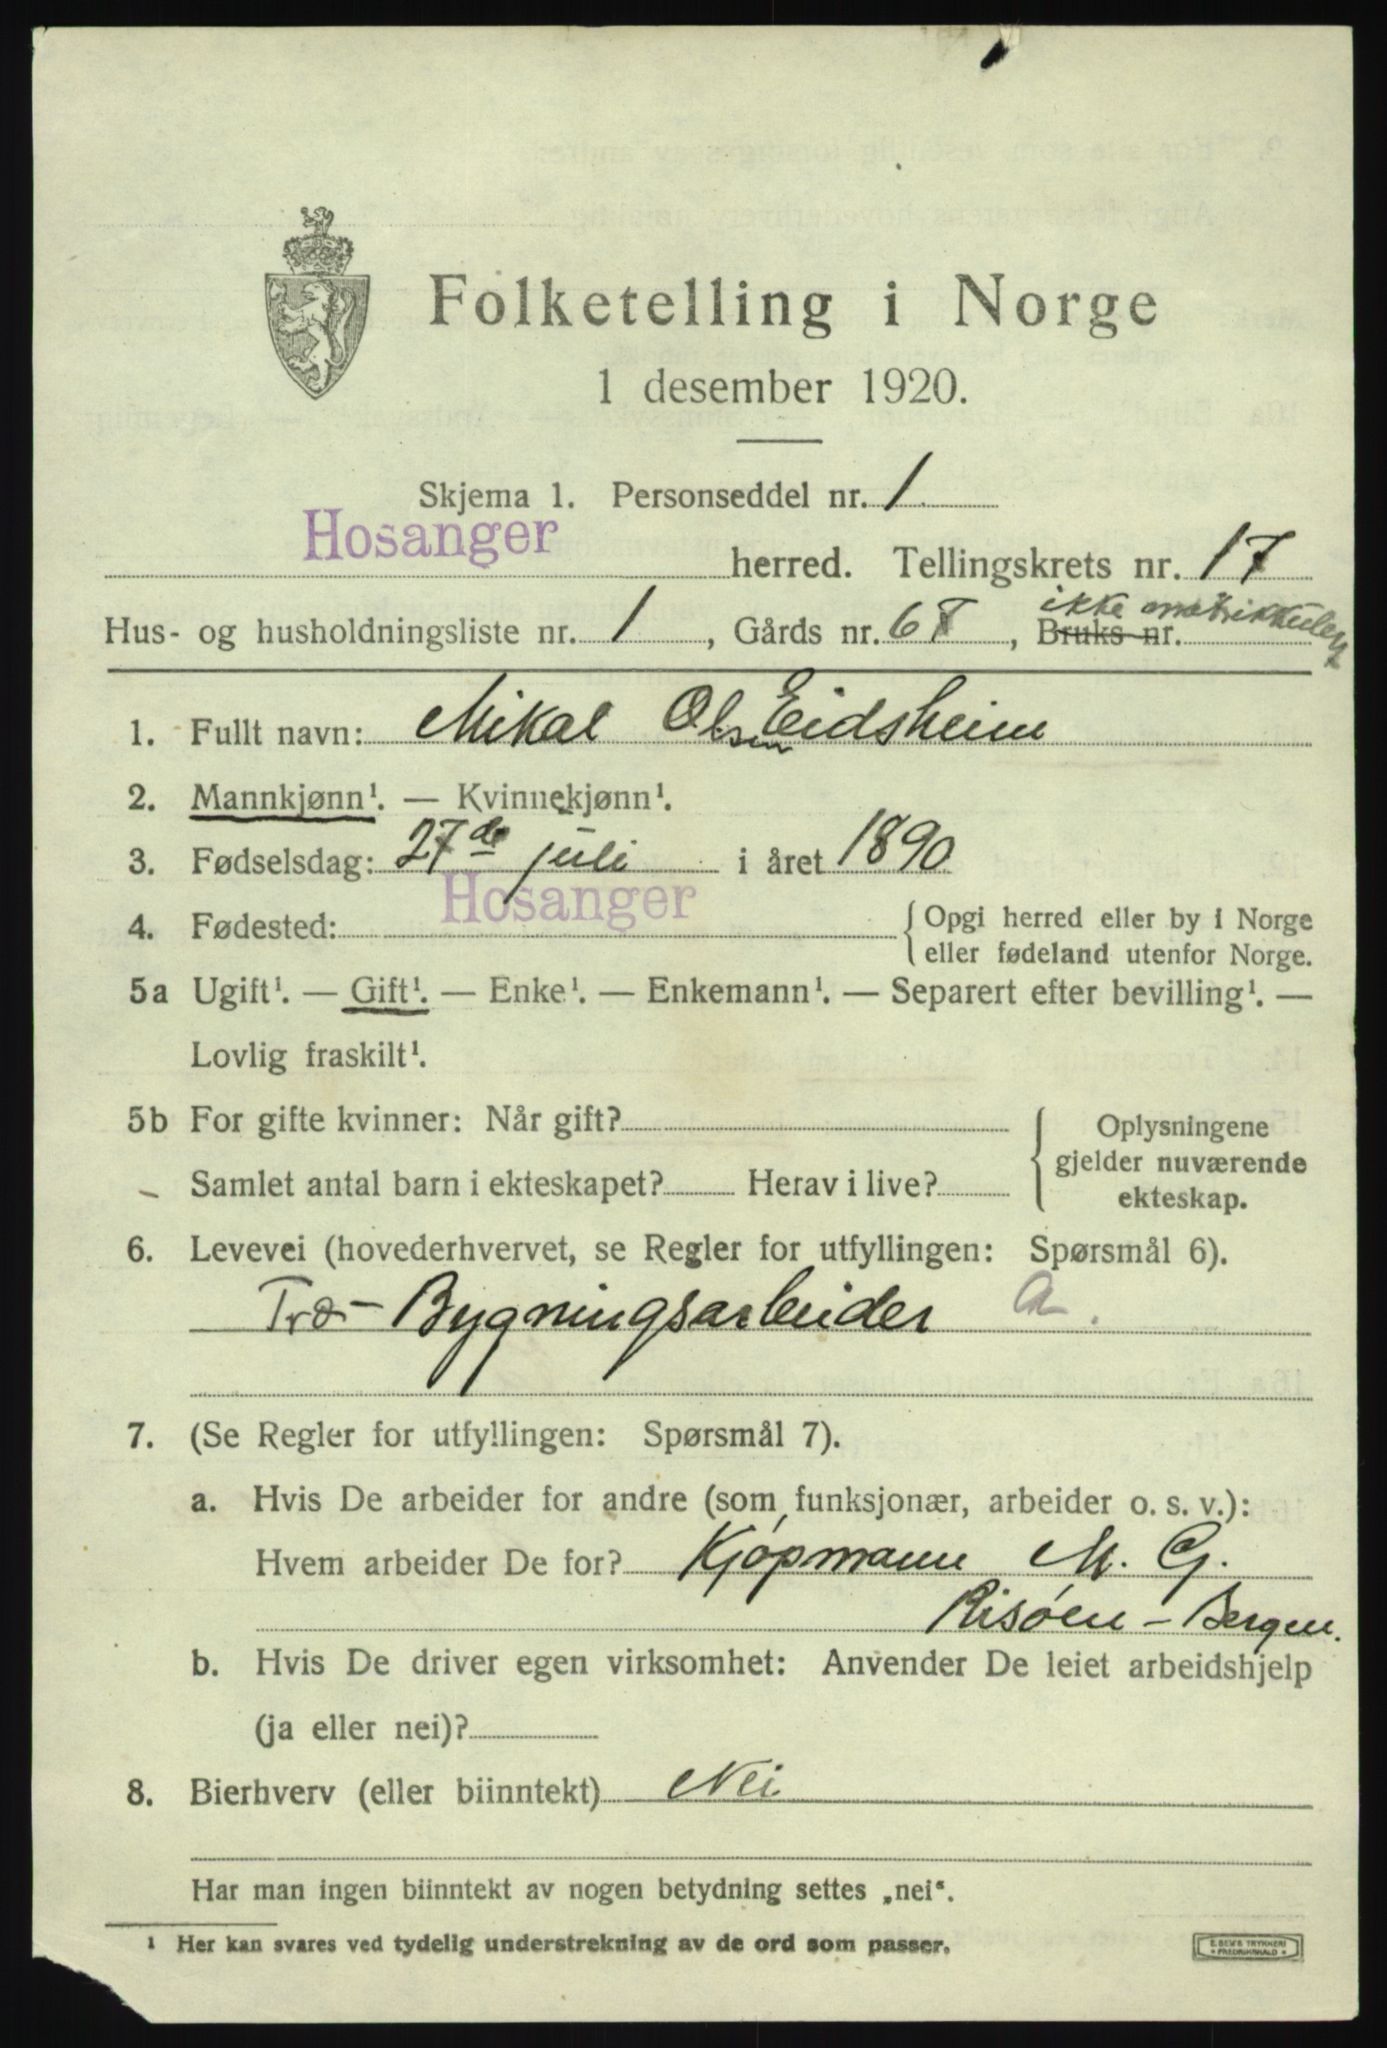 Folketelling i Norge
1 desember 1920.
Skjema 1. Personseddel nr. 1
Hosanger herred. Tellingskrets nr. 17
Hus- og husholdningsliste nr. 1, Gårds nr. 67, Bruks nr. ikke matrikkulert
1. Fullt navn: Mikal Olsen Eidsheim
2. Mannkjønn¹. — Kvinnekjønn¹.
3. Fødselsdag: 27de juli i året 1890
4. Fødested: Hosanger { Opgi herred eller by i Norge
eller fødeland utenfor Norge.
5a Ugift¹. — Gift¹. — Enke¹. — Enkemann¹. — Separert efter bevilling¹. —
Lovlig fraskilt¹.
5b For gifte kvinner: Når gift?
Samlet antal barn i ekteskapet? Herav i live?
Oplysningene
gjelder nuværende
ekteskap.
6. Levevei (hovederhvervet, se Regler for utfyllingen: Spørsmål 6).
Træ- Bygningsarbeider a.
7. (Se Regler for utfyllingen: Spørsmål 7).
a. Hvis De arbeider for andre (som funksjonær, arbeider o. s. v.):
Hvem arbeider De for? Kjøpmann M. G.
Risøen - Bergen.
b. Hvis De driver egen virksomhet: Anvender De leiet arbeidshjelp
(ja eller nei)?
8. Bierhverv (eller biinntekt) Nei
Har man ingen biinntekt av nogen betydning settes „nei“.
¹ Her kan svares ved tydelig understrekning av de ord som passer.
E. SEM'S TRYKKERI
FREDRIKSHALD